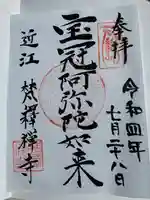 奉拝
令和四年
七月二十八日
宝冠阿弥陀如来
近江
梵釋禅寺